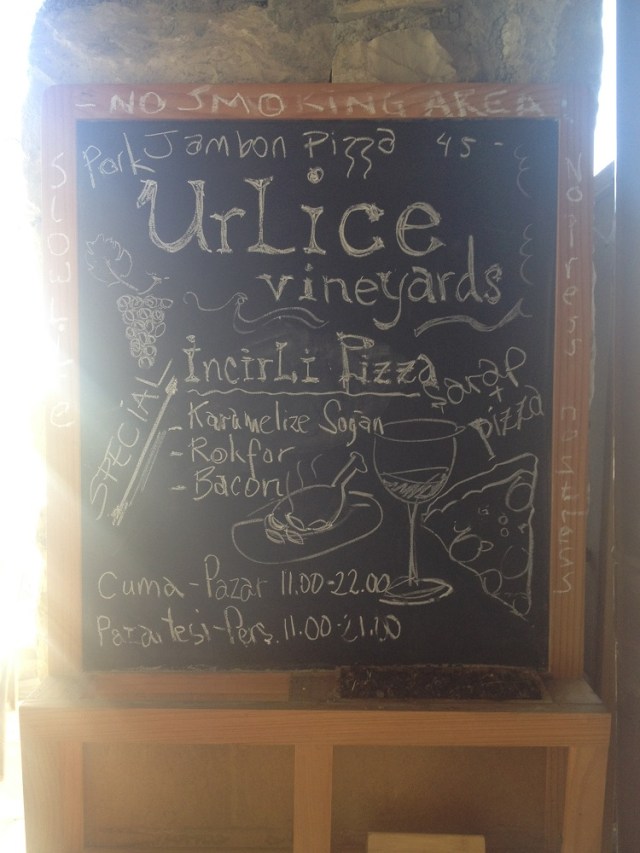 - NO SMOKING AREA -
Pork Jambon Pizza 45 -
UrLice
vineyards
SPECIAL
İncirLi Pizza
- Karamelize Soğan
- Rokfor
- Bacon
Şarap
+
Pizza
Cuma - Pazar 11.00-22.00
Pazartesi-Perş. 11.00-21.00